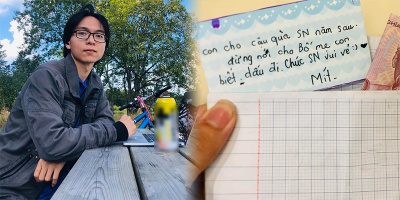 con cho cậu quà SN năm sau.
đừng nói cho Bố mẹ con
biết. dấu đi. Chúc SN vui vẻ :)
Mít.